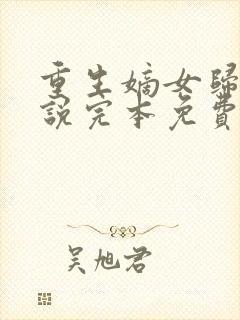 重生嫡女歸
說完本免費
吴旭君